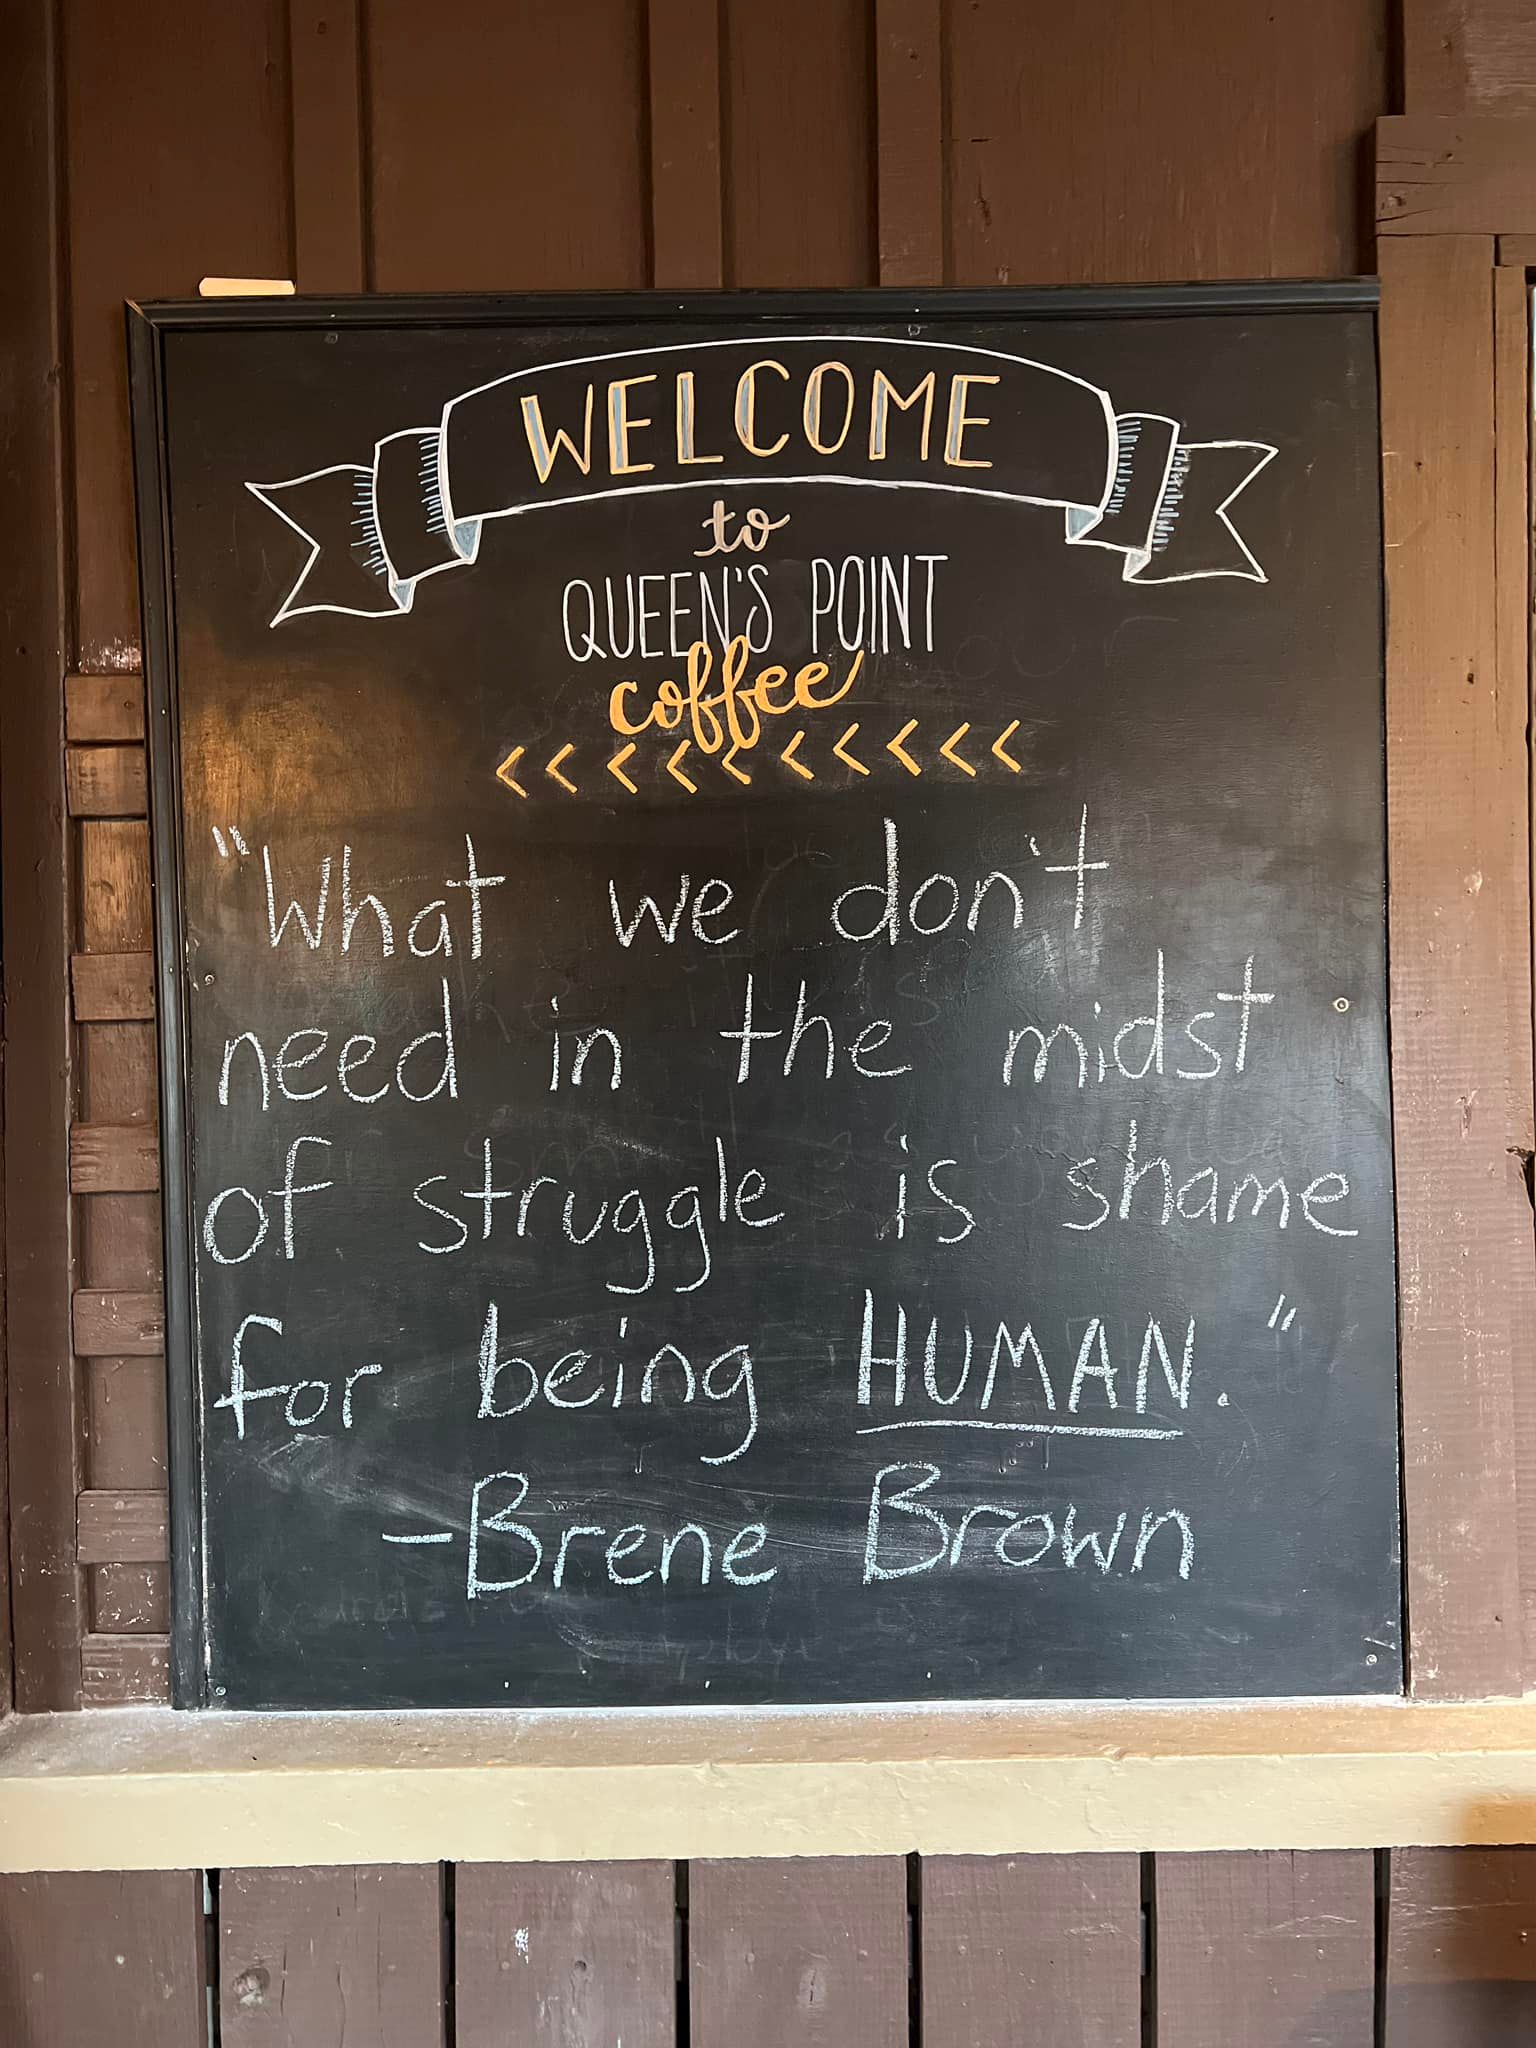 WELCOME
to
QUEEN'S POINT
coffee
<<<<<<<<<<
"What we don't
need in the midst
of struggle is shame
for being HUMAN."
-Brene Brown